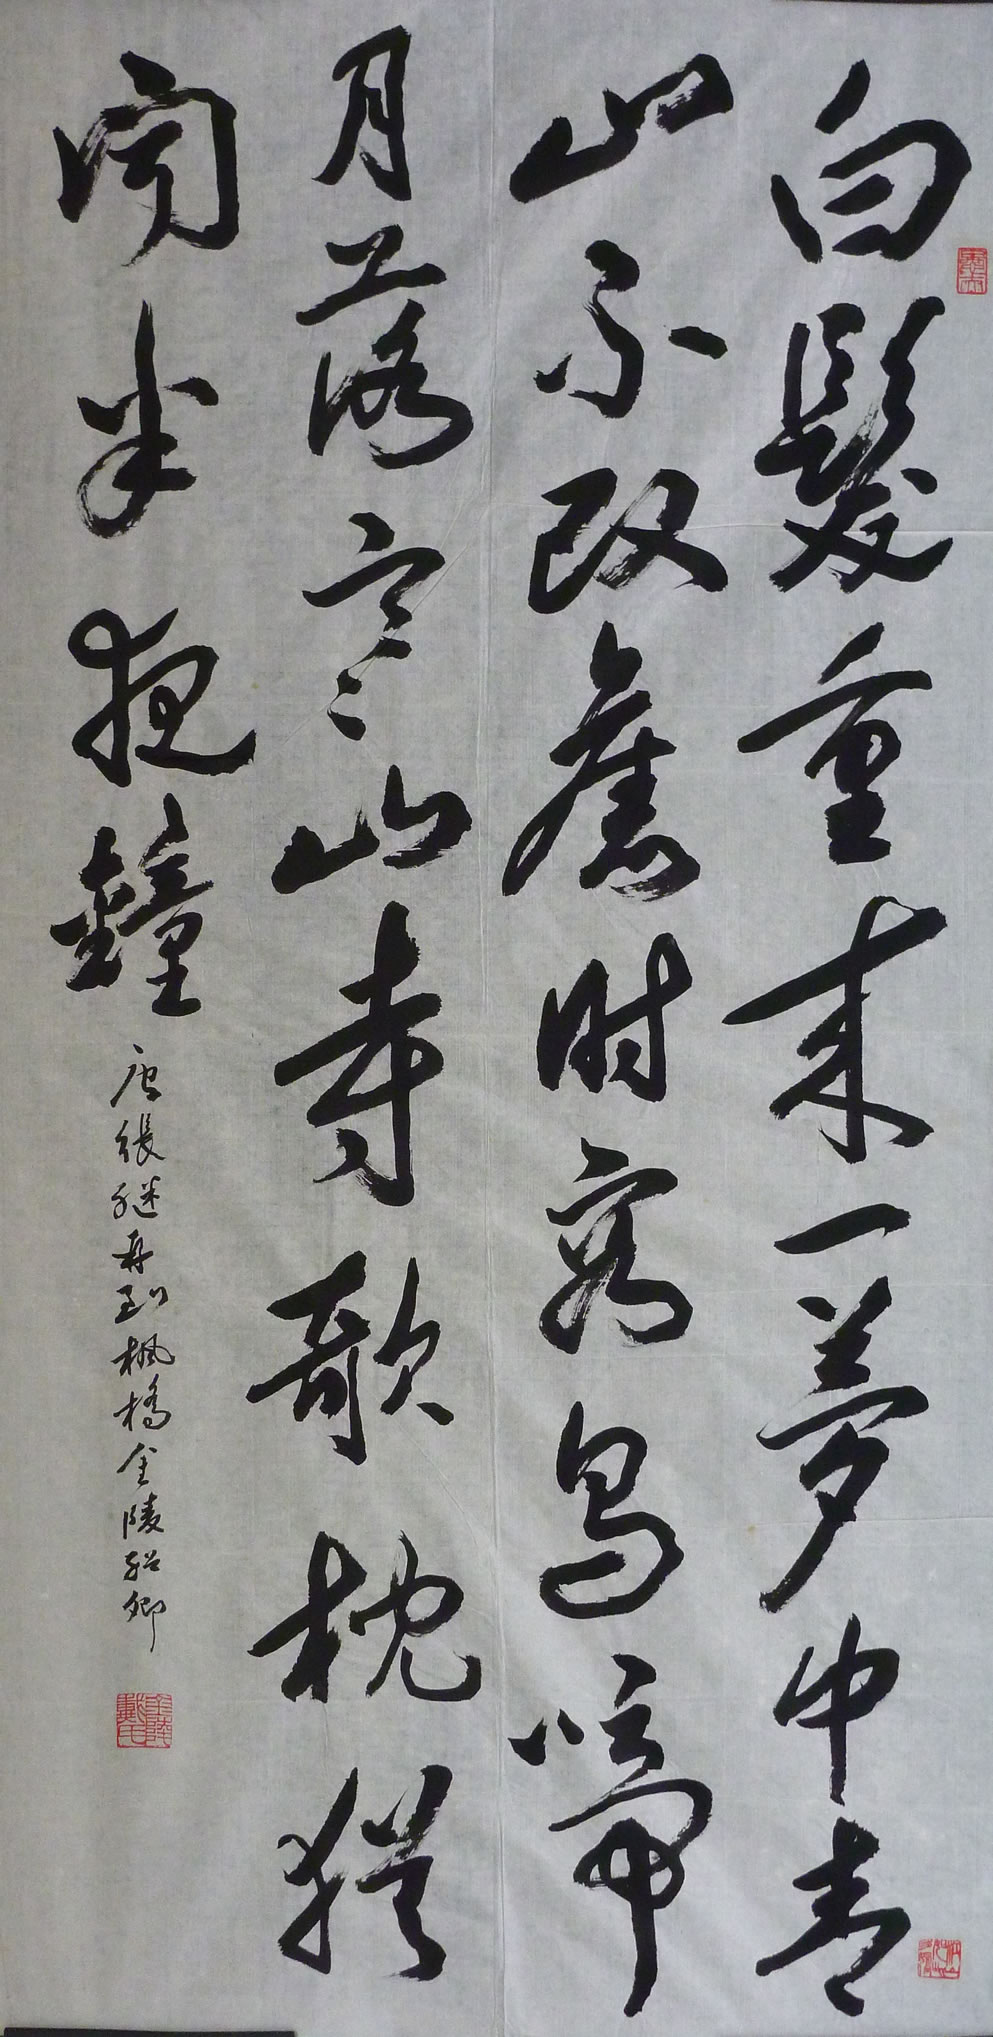 白髮重來一夢中青
山不改舊時容烏啼
月落寒山寺欹枕猶
聞半夜鐘
唐張继再到楓橋金陵紹卿